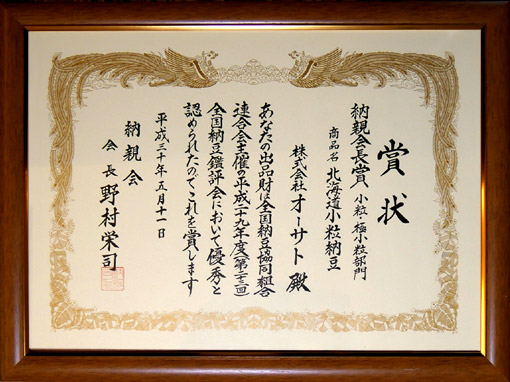 賞状
納親会長賞、小粒・極小粒部門
商品名 北海道小粒納豆
株式会社オーサト殿
あなたの出品財は全国納豆協同組合
連合会主催の平成二十九年度(第二十三回)
全国納豆鑑評会において優秀と
認められたのでこれを賞します
平成三十年五月十一日
納親会
会長 野村栄司